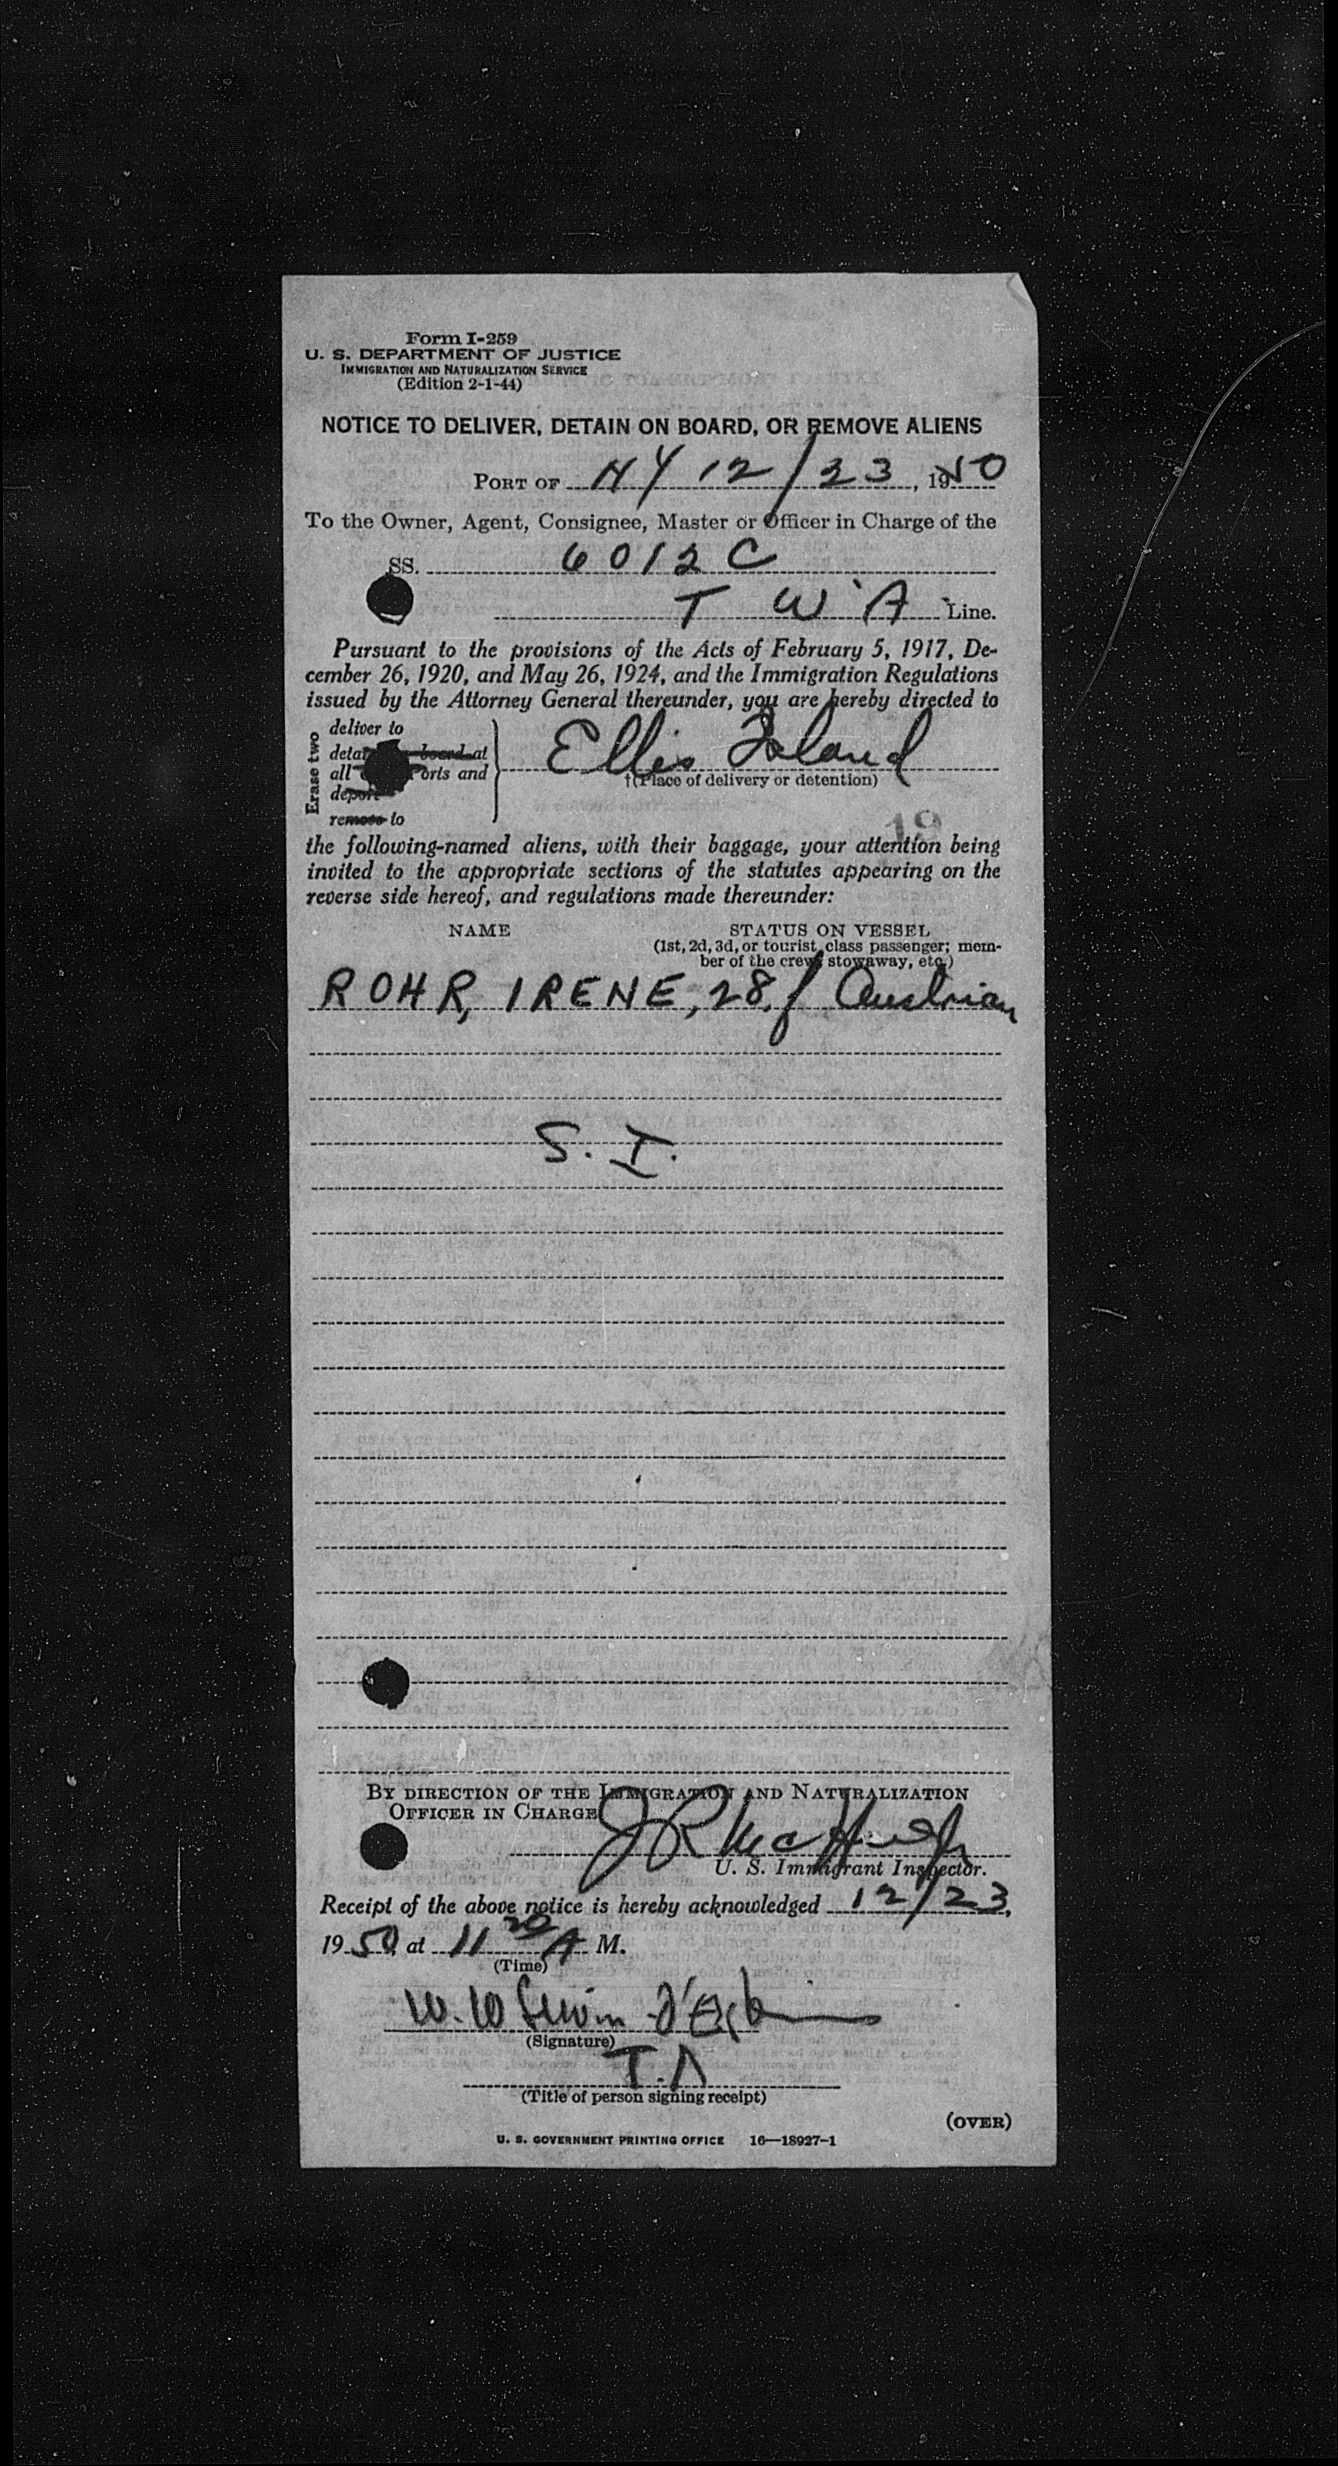 Form I-259
U. S. DEPARTMENT OF JUSTICE
IMMIGRATION AND NATURALIZATION SERVICE
(Edition 2-1-44)
NOTICE TO DELIVER, DETAIN ON BOARD, OR REMOVE ALIENS
PORT OF NY 12/23, 1950
To the Owner, Agent, Consignee, Master or Officer in Charge of the
SS. 6012C
T W A Line.
Pursuant to the provisions of the Acts of February 5, 1917, De-
cember 26, 1920, and May 26, 1924, and the Immigration Regulations
issued by the Attorney General thereunder, you are hereby directed to
Erase two
deliver to
board at
all ports and
deport
remove to
Ellis Island
†(Place of delivery or detention)
19
the following-named aliens, with their baggage, your attention being
invited to the appropriate sections of the statutes appearing on the
reverse side hereof, and regulations made thereunder:
NAME STATUS ON VESSEL
(1st, 2d, 3d, or tourist class passenger; mem-
ber of the crew, stowaway, etc.)
ROHR, IRENE, 28, f Austrian
S. I.
BY DIRECTION OF THE IMMIGRATION AND NATURALIZATION
OFFICER IN CHARGE
J R MacHugh
U. S. Immigrant Inspector.
Receipt of the above notice is hereby acknowledged 12/23,
1950, at 11 20 A M.
(Time)
W. W
(Signature)
T. A
(Title of person signing receipt)
(OVER)
U. S. GOVERNMENT PRINTING OFFICE 16—18927-1